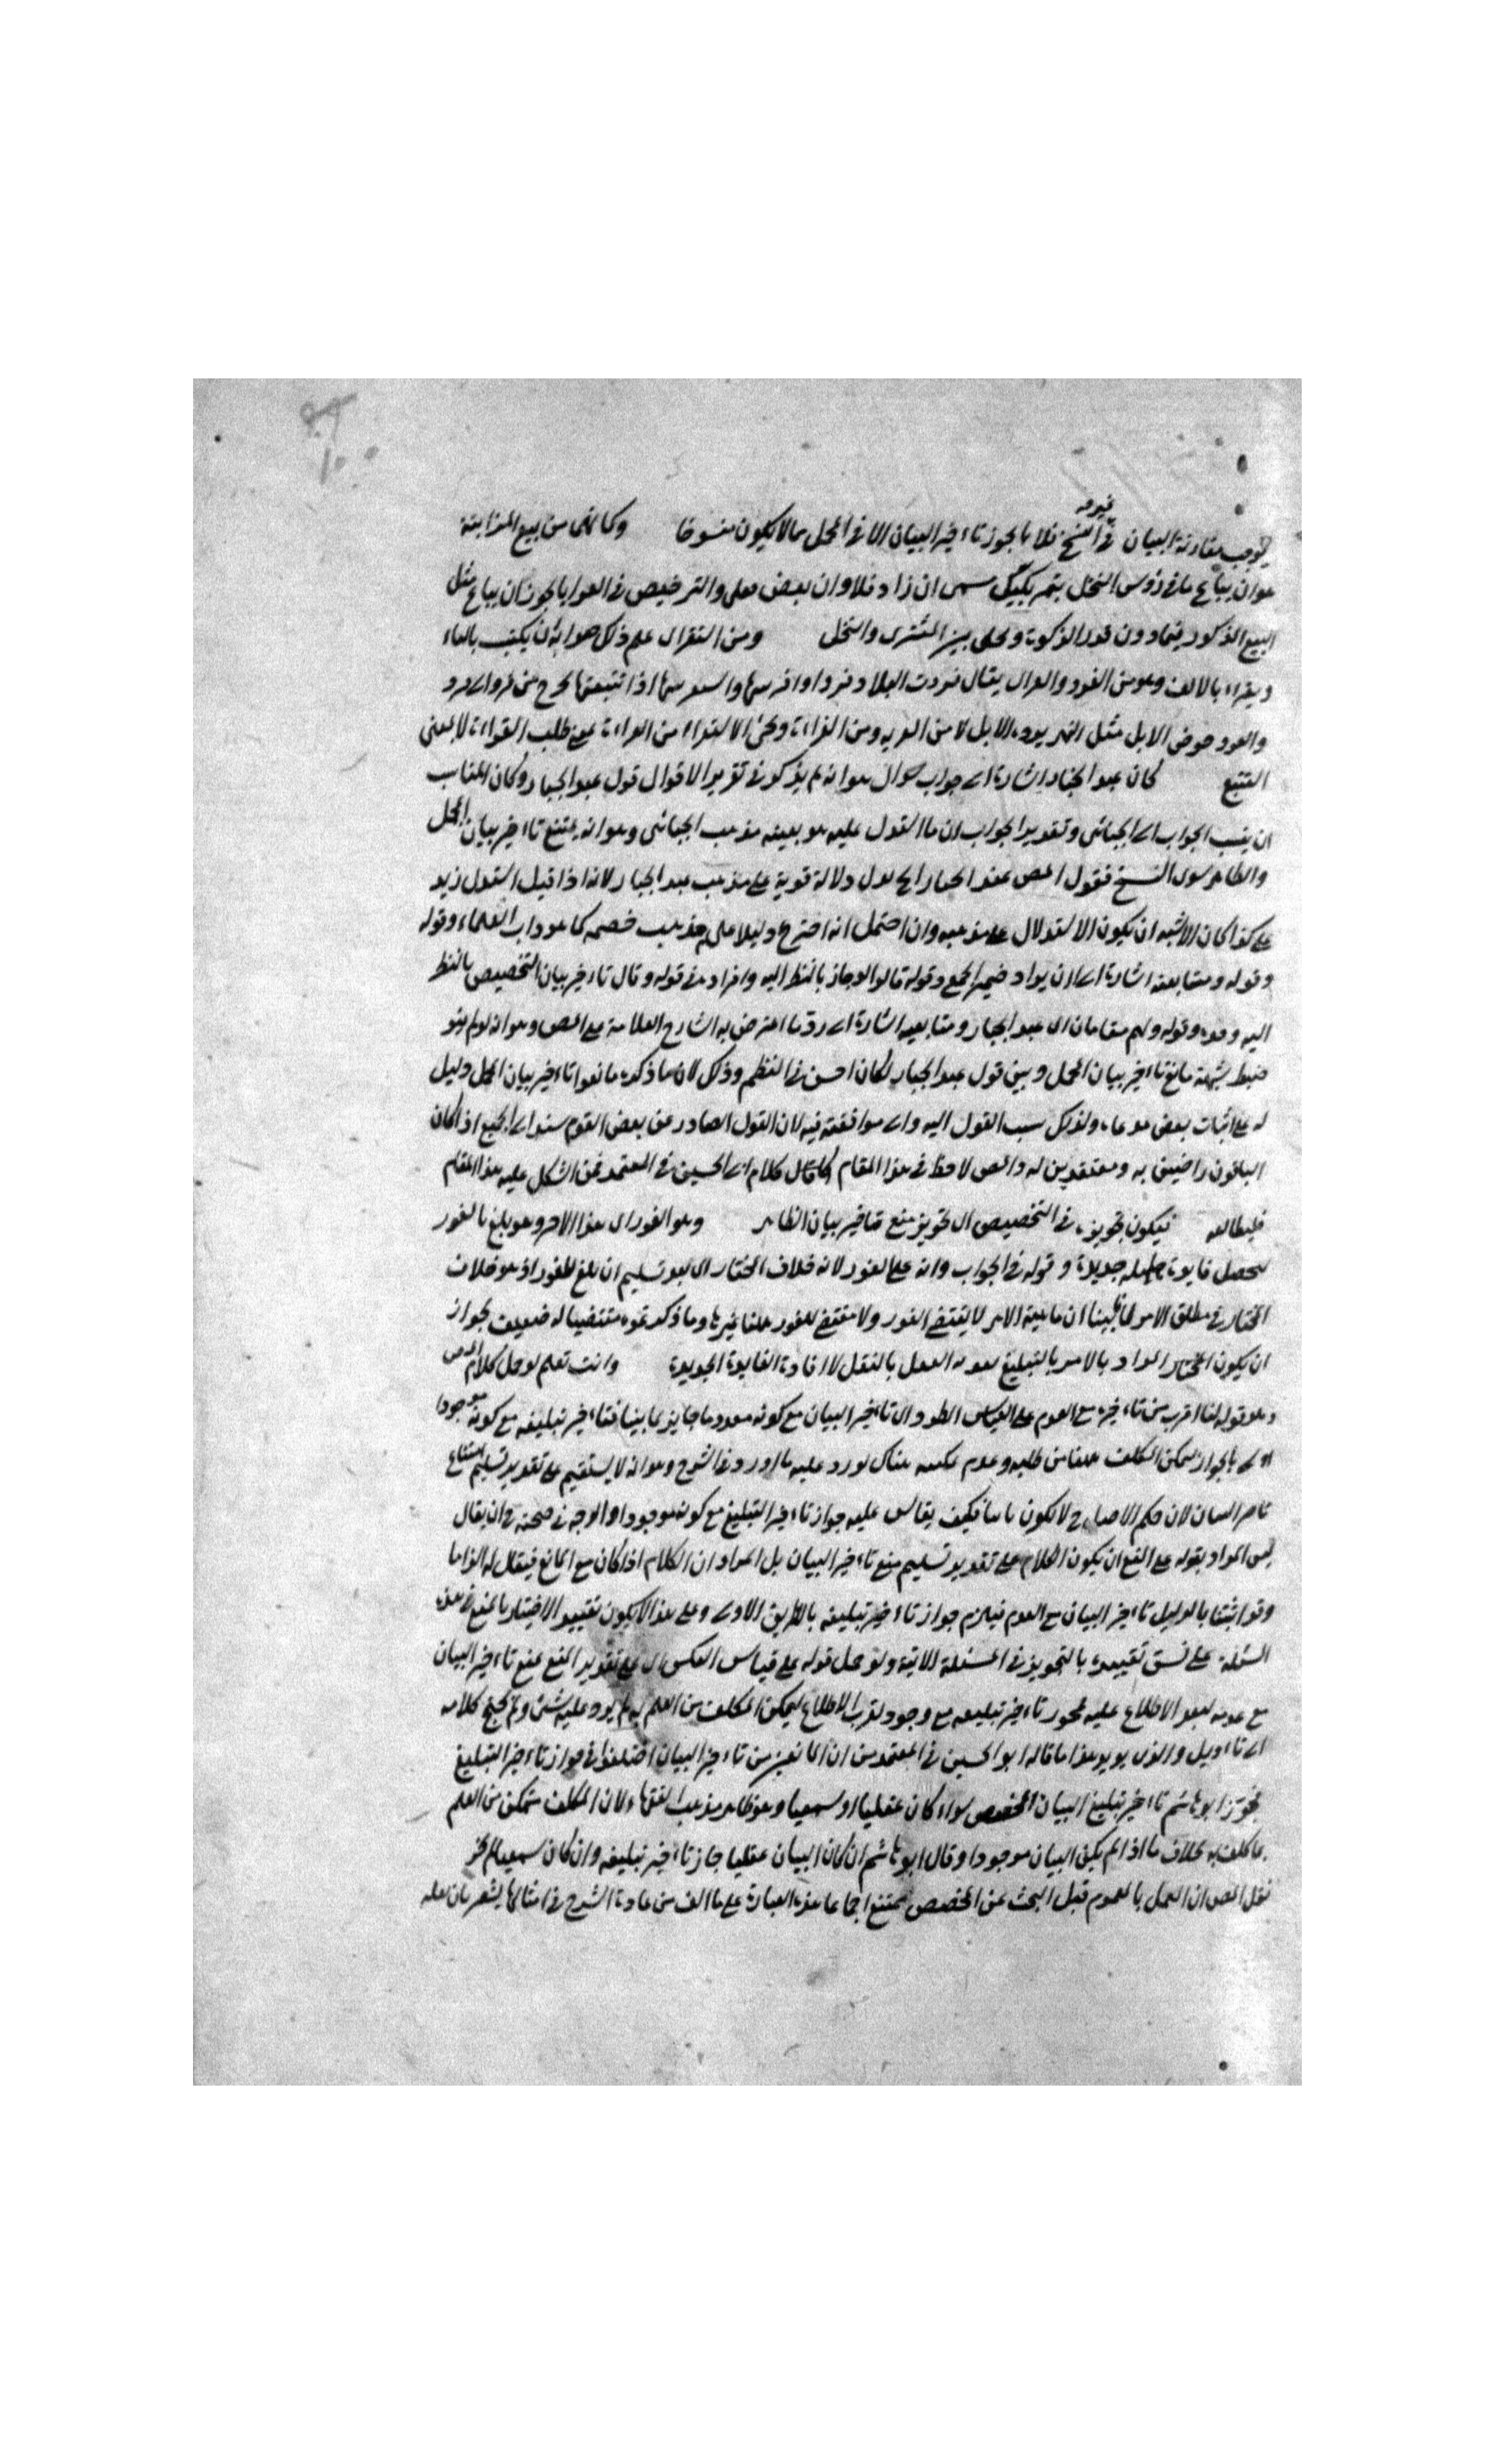 يوجب مقارنة البيان في النسخ فلا يجوز تاخير البيان الا في المجمل مما لا يكون منسوخا وكما نهى من بيع المزابنة
هو ان يباع ما في رؤس النخل بتمر بكيل مسمى ان زاد فلي وان نقص فعلي والترخيص في العرايا يجوز ان يباع مثل
البيع المذكور فيما دون قدر الزكوة ويخلى بين المشتري والنخل ومن استقرأ علم ذلك هو اما ان يكتب بالهاء
ويقراء بالالف وهو من القرو
والقرو حوض الابل مثل النهر يرده الابل لا من القرية ومن القراءة ويجئ الاستقراء من القراءة بمعنى طلب القراءة لا بمعنى
التتبع كان عبد الجبار اشارة الى جواب سوال هو انه لم يذكر في تقرير الاقوال قول عبد الجبار وكان المناسب
ان ينسب الجواب الى الجبائي وتقدير الجواب ان ما استدل عليه هو بعينه مذهب الجبائي وهو انه يمتنع تاخير بيان المجمل
والظاهر سوى النسخ فنقول المص عند الجبار يدل دلالة قوية على مذهب عبد الجبار لانه اذا قيل استدل زيد
على كذا كان الاشبه ان يكون الاستدلال على مذهبه وان احتمل انه اخترع دليلا على مذهب خصمه كما هو داب العلماء وقوله
وقوله ومتابعيه اشارة الى ان يراد ضمير الجمع وقوله قالوا لو جاز بالنظر اليه وافراده في قوله وقال تاخير بيان التخصيص بالنظر
اليه وحده وقوله ولهم مقامان اى عبد الجبار ومتابعيه اشارة الى رد ما اعترض به الشارح العلامة على المص وهو انه لو لم
ضبط شبهة مانع تاخير بيان المجمل وبين قول عبد الجبار لكان احسن في النظم وذلك لان ما ذكره مانعوا تاخير بيان المجمل دليل
له على اثبات بعض مدعاه ولذلك نسب القول اليه والى موافقته فيه لان القول الصادر من بعض القوم يسند الى الجميع اذا كان
الباقون راضين به ومعتقدين له والمص لاحظ في هذا المقام كلام ابي الحسين في المعتمد فمن اشكل عليه هذا المقام
فليطالعه فيكون تجويزه في التخصيص اى تجويز منع تاخير بيان الظاهر وهو الفور اى هذا الامر وهو بلغ بالفور
ليحصل فايدة جديدة وقوله في الجواب وانه على الفور لانه خلاف المختار اى بعد تسليم ان بلغ للفور اذ هو خلاف
المختار في مطلق الامر لما بينا ان ماهية الامر لا يقتضي الفور ولا مقتضي للفور هنا غيرها وما ذكرتموه مقتضيا له ضعيف لجواز
ان يكون المختار المراد بالامر بالتبليغ بعد العقل بالنقل لا افادة الفايدة الجديدة وانت تعلم لو حمل كلام المص
وهو قوله لنا اقرب من تاخيره مع العدم على القياس الطرد اى تاخير البيان مع كونه معدوما جايز لما بينا فتاخير تبليغه مع كونه موجودا
اولى بالجواز لتمكن المكلف هنا من طلبه وعدم تمكنه هناك لورد عليه ما اورد في الشرح وهو انه لا يستقيم على تقدير تسليم امتناع
تاخير البيان لان حكم الاصل ح لا يكون ثابتا فكيف يقاس عليه جواز تاخير التبليغ مع كونه موجودا والوجه في صحته ح ان يقال
ليس المراد بقوله على المنع ان يكون الكلام على تقدير تسليم منع تاخير البيان بل المراد ان الكلام اذا كان مع المانع فيقال له الزاما
وقد اثبتنا بالدليل تاخير البيان مع العدم فيلزم جواز تاخير تبليغه بالطريق الاولى وعلى هذا لا يكون تقييد الاختيار بالمنع في هذه
المسئلة على نسق تقييده بالتجويز في المسئلة الاتية ولو حمل قوله على قياس العكس اى على تقدير المنع يمنع تاخير البيان
مع عدمه لبعد الاطلاع عليه تجوز تاخير تبليغه مع وجوده لقرب الاطلاع ليمكن المكلف من العلم به لم يرد عليه شئ ولم يحتج كلامه
الى تاويل والذى يويد هذا ما قاله ابو الحسين في المعتمد من ان المانعين من تاخير البيان اختلفوا في جواز تاخير التبليغ
فجوز ابو هاشم تاخير تبليغ البيان المخصص سواء كان عقليا او سمعيا وهو ظاهر مذهب الفقهاء لان المكلف متمكن من العلم
بما كلف به بخلاف ما اذا لم يكن البيان موجودا وقال ابو هاشم ان كان البيان عقليا جاز تاخير تبليغه وان كان سمعيا لم يجز
نقل المص ان العمل بالعموم قبل البحث عن المخصص ممتنع اجماعا هذه العبارة على ما الف من عادة الشرح في امثالها يشعر بان